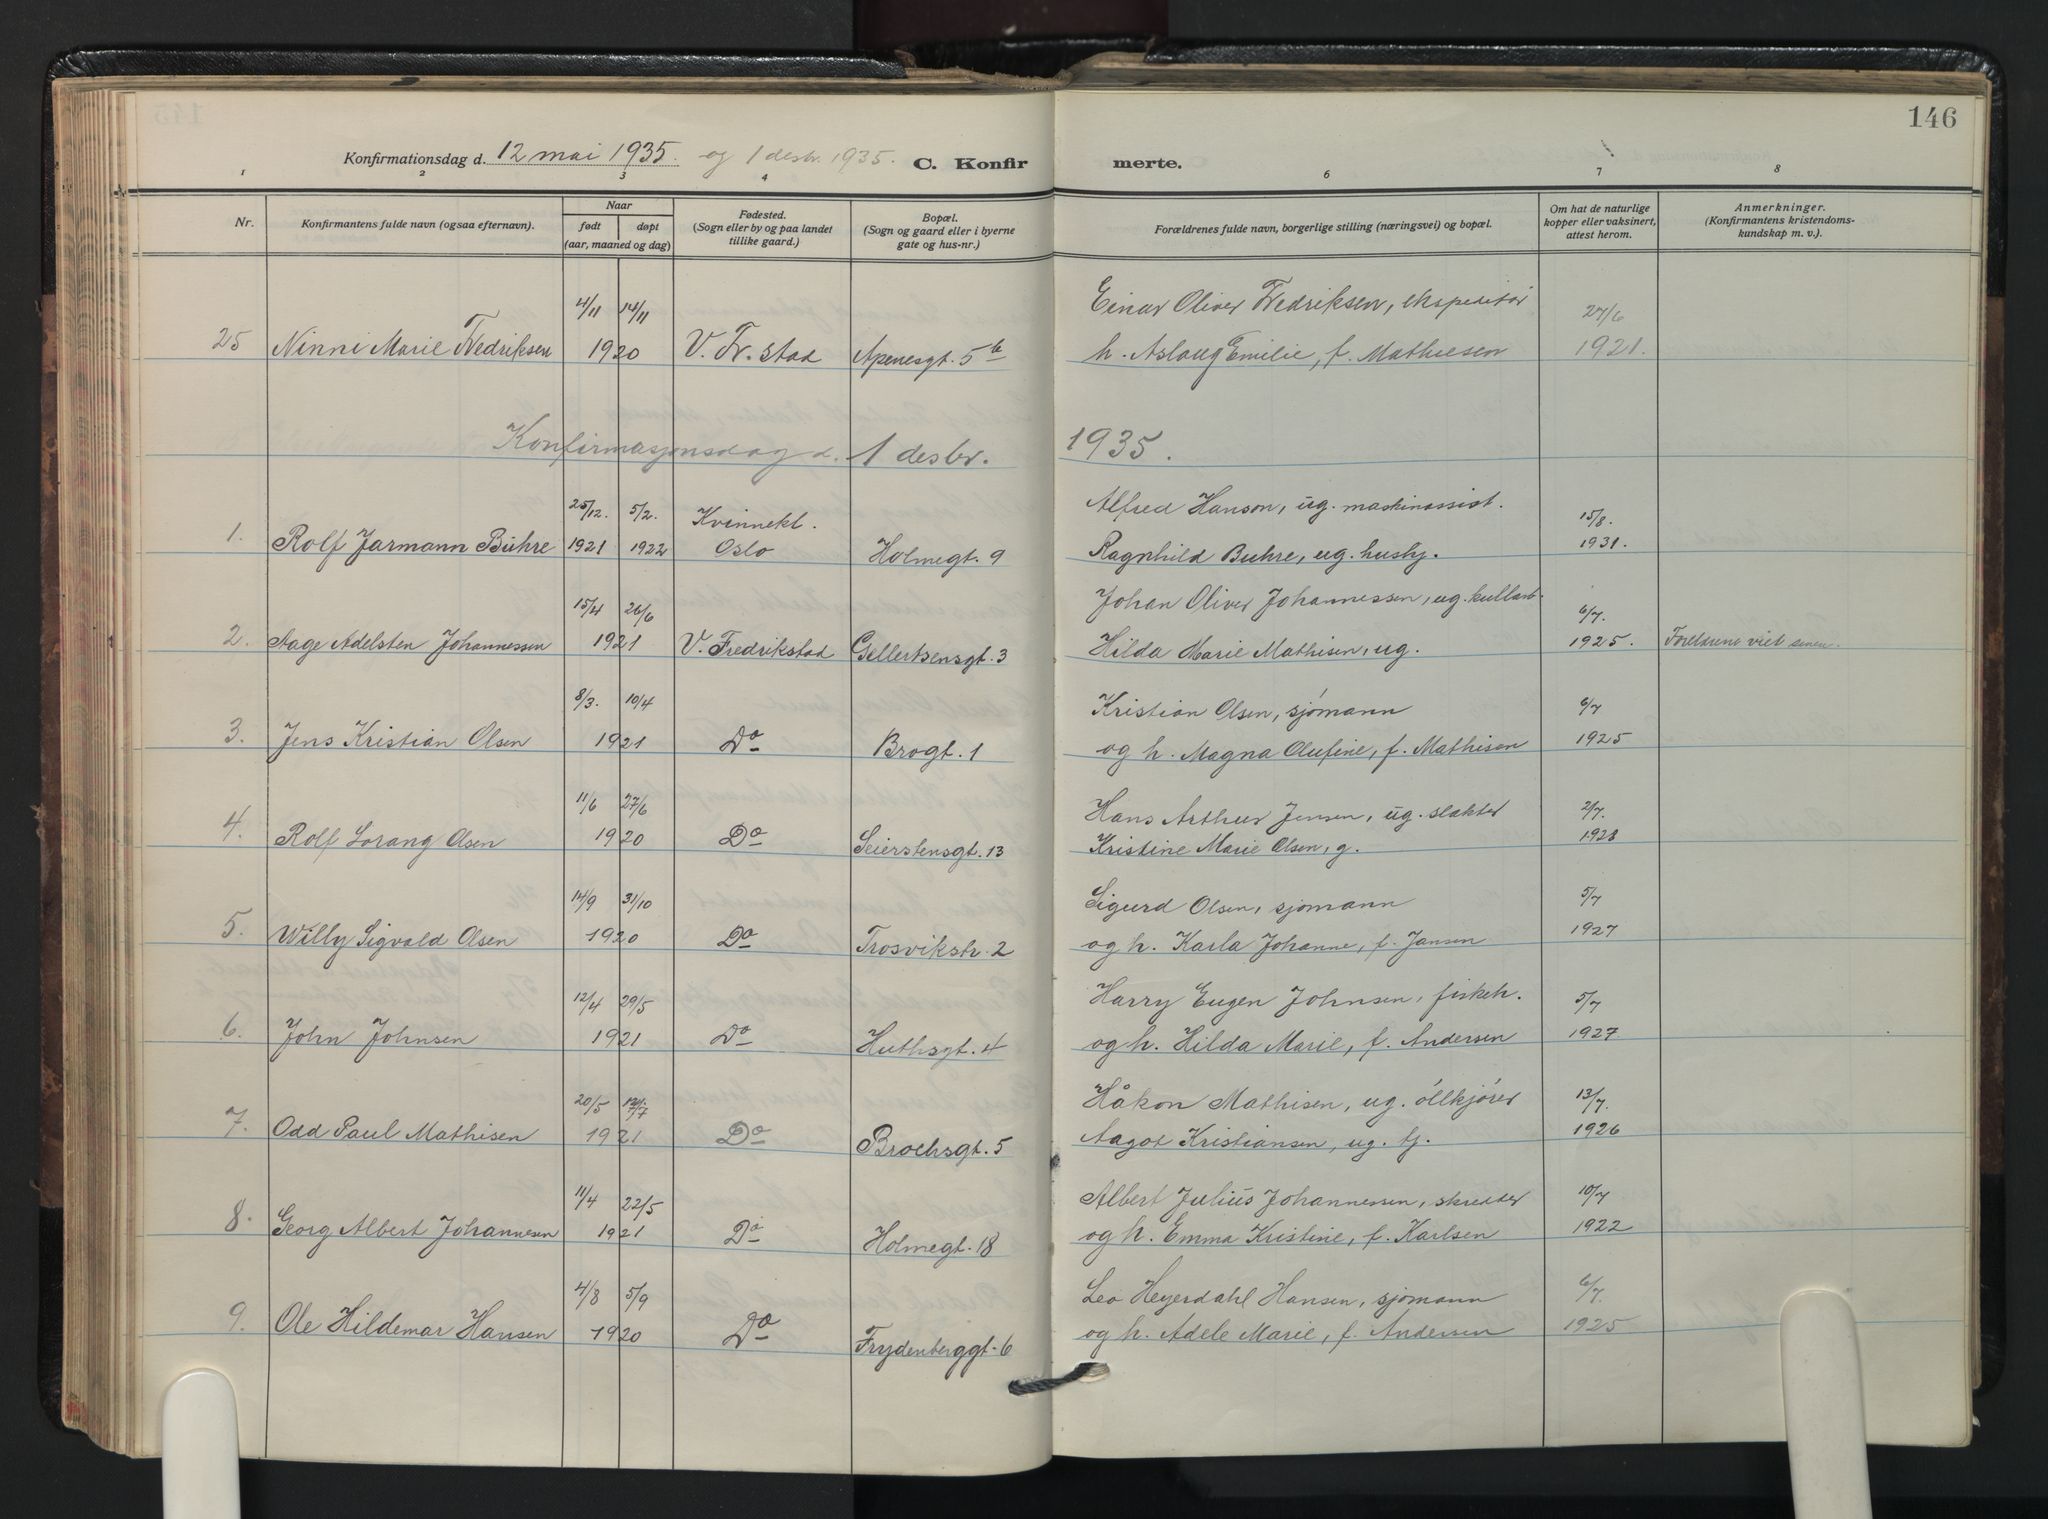 146
Konfirmationsdag d. 12 mai 1935. og 1 desbr. 1935. C. Konfirmerte.
1 2 3 4 6 7 8
Nr.
Konfirmantens fulde navn (ogsaa efternavn).
Naar
født døpt
(aar, maaned og dag)
Fødested.
(Sogn eller by og paa landet
tillike gaard.)
Bopæl.
(Sogn og gaard eller i byerne
gate og hus-nr.)
Forældrenes fulde navn, borgerlige stilling (næringsvei) og bopæl.
Om hat de naturlige
kopper eller vaksinert,
attest herom.
Anmerkninger.
(Konfirmantens kristendoms-
kundskap m. v.).
4/11 14/11 Einar Oliver Fredriksen, ekspeditør 27/6
25 Ninni Marie Fredriksen 1920 V. Fr.stad Apenesgt. 5b h. Aslaug Emilie, f. Mathiesen 1921.
Konfirmasjonsdag d. 1 desbr. 1935.
25/12. 5/2. Kvinnekl. Alfred Hanson, ug. maskinassist. 15/8.
1. Rolf Jarmann Buhre 1921 1922 Oslo Holmegt. 9 Ragnhild Buhre, ug. husby. 1931.
15/4 26/6 Johan Oliver Johannessen, ug. kullarb. 6/7
2. Aage Adelsten Johannessen 1921 V. Fredrikstad Gellertsensgt. 3 Hilda Marie Mathisen, ug. 1925. Foreldrene viet senere.
8/3. 10/4 Kristian Olsen, sjømann 6/7
3. Jens Kristian Olsen 1921 Do Brogt. 1 og h. Magna Olufine, f. Mathisen 1925
11/6 27/6 Hans Arthur Jensen, ug. slakter 2/7.
4. Rolf Lorang Olsen 1920 Do Seierstensgt. 13 Kristine Marie Olsen, g. 1928
14/9 31/10 Sigurd Olsen, sjømann 5/7
5. Willy Sigvald Olsen 1920 Do Trosvikstr. 2 og h. Karla Johanne, f. Jansen 1927
12/4 29/5 Harry Eugen Johnsen, fiskeh. 5/7
6. John Johnsen 1921 Do Huthsgt. 4 og h. Hilda Marie, f. Andersen 1927.
20/5 Håkon Mathisen, ug. ølkjører 13/7.
7. Odd Paul Mathisen 1921 Do Brochsgt. 5 Aagot Kristiansen, ug. tj. 1926
11/4 22/5 Albert Julius Johannessen, skredder 10/7
8. Georg Albert Johannesen 1921 Do Holmegt. 18 og h. Emma Kristine, f. Karlsen 1922
4/8 5/9 Leo Heyerdahl Hansen, sjømann 6/7.
9. Ole Hildemar Hansen 1920 Do Frydenberggt. 6 og h. Adele Marie, f. Andersen 1925